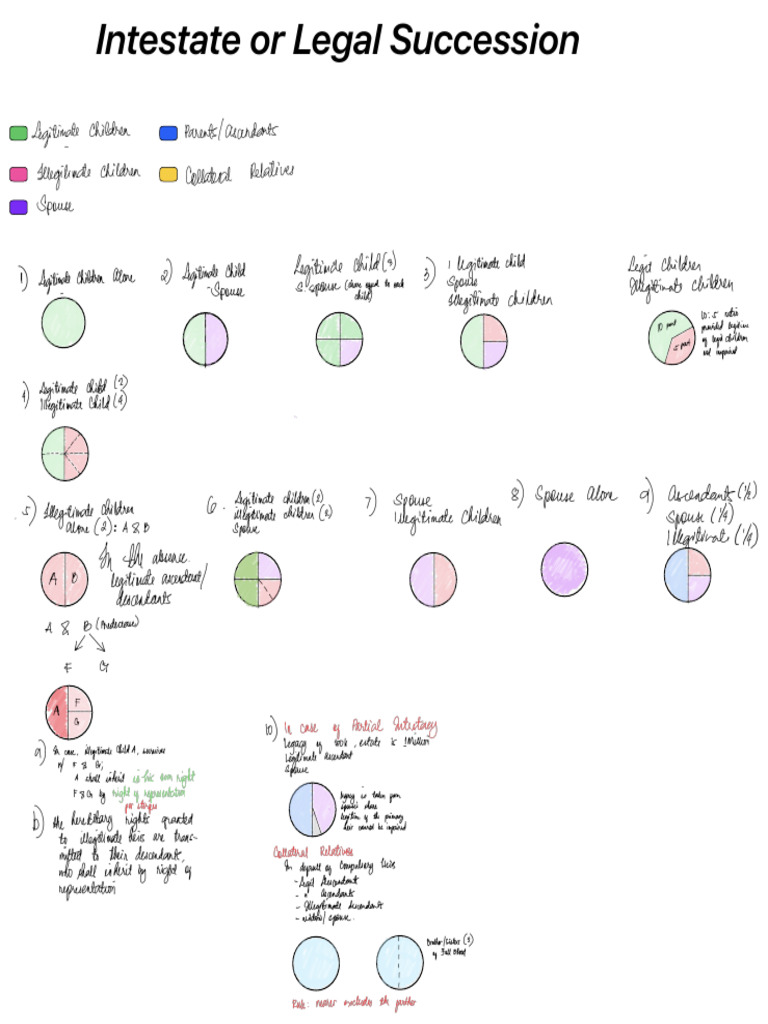 Intestate or Legal Succession
Legitimate Children
Parents/Ascendants
Illegitimate Children
Collateral Relatives
Spouse
1) Legitimate Children Alone
2) Legitimate Child
- Spouse
Legitimate Child (3)
& Spouse (share equal to each
child)
3) 1 legitimate child
Spouse
Illegitimate Children
Legit Children
Illegitimate Children
10 part
5 part
10:5 ratio
provided legitime
of legit children
not impaired
4) Legitimate Child (2)
Illegitimate Child (4)
5) Illegitimate Children
Alone (2): A & B
A B
In the absence
legitimate ascendant/
descendants
A & B (predeceased)
F G
A
F
G
a) In case, illegitimate Child A, survives
w/ F & G;
A shall inherit in his own right
F & G by right of representation
per stirpes
b) The hereditary rights granted
to illegitimate heirs are trans-
mitted to their descendants,
who shall inherit by right of
representation
6. Legitimate children (2)
illegitimate children (2)
Spouse
7) Spouse
Illegitimate Children
8) Spouse Alone
9) Ascendants (1/2)
Spouse (1/4)
Illegitimate (1/4)
10) In case of Partial Intestacy
Legacy of 100k, estate is 1 Million
Legitimate ascendant
Spouse
legacy is taken from
spouse's share
legitime of the primary
heir cannot be impaired
Collateral Relatives
In default of Compulsory heirs
- Legit Descendant
- " Ascendants
- Illegitimate descendants
- widow/spouse.
Brother/Sister (2)
of Full Blood
Rule: nearer excludes the farther